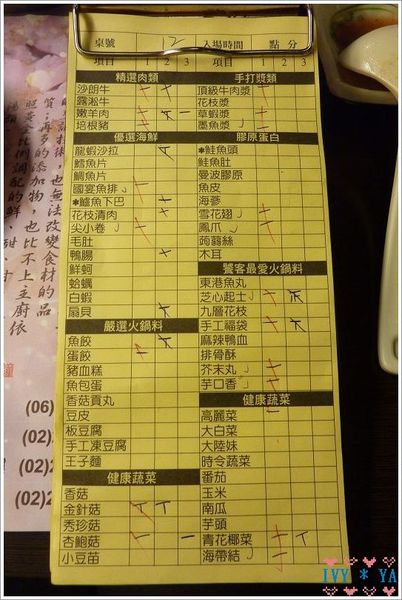 桌號 12 入場時間 點 分
項目 1 2 3 項目 1 2 3
精選肉類
沙朗牛
露淞牛
嫩羊肉
培根豬
優選海鮮
龍蝦沙拉
鱈魚片
鯛魚片
國宴魚排
*鱸魚下巴
花枝清肉
尖小卷
毛肚
鴨腸
鮮蚵
蛤蠣
白蝦
扇貝
嚴選火鍋料
魚餃
蛋餃
豬血糕
魚包蛋
香菇貢丸
豆皮
板豆腐
手工凍豆腐
王子麵
健康蔬菜
香菇
金針菇
秀珍菇
杏鮑菇
小豆苗
手打漿類
頂級牛肉漿
花枝漿
草蝦漿
墨魚漿
膠原蛋白
*鮭魚頭
鮭魚肚
曼波膠原
魚皮
海蔘
雪花翅
鳳爪
蒟蒻絲
木耳
饕客最愛火鍋料
東港魚丸
芝心起士
九層花枝
手工福袋
麻辣鴨血
排骨酥
芥末丸
芋口香
健康蔬菜
高麗菜
大白菜
大陸妹
時令蔬菜
番茄
玉米
南瓜
芋頭
青花椰菜
海帶結
也無法改變食材的品
質;再多的添加物,也比不上主廚依
比例調配的鮮、甜、甘
(06)
(02)2
(02)2
(02)2
IVY * YA